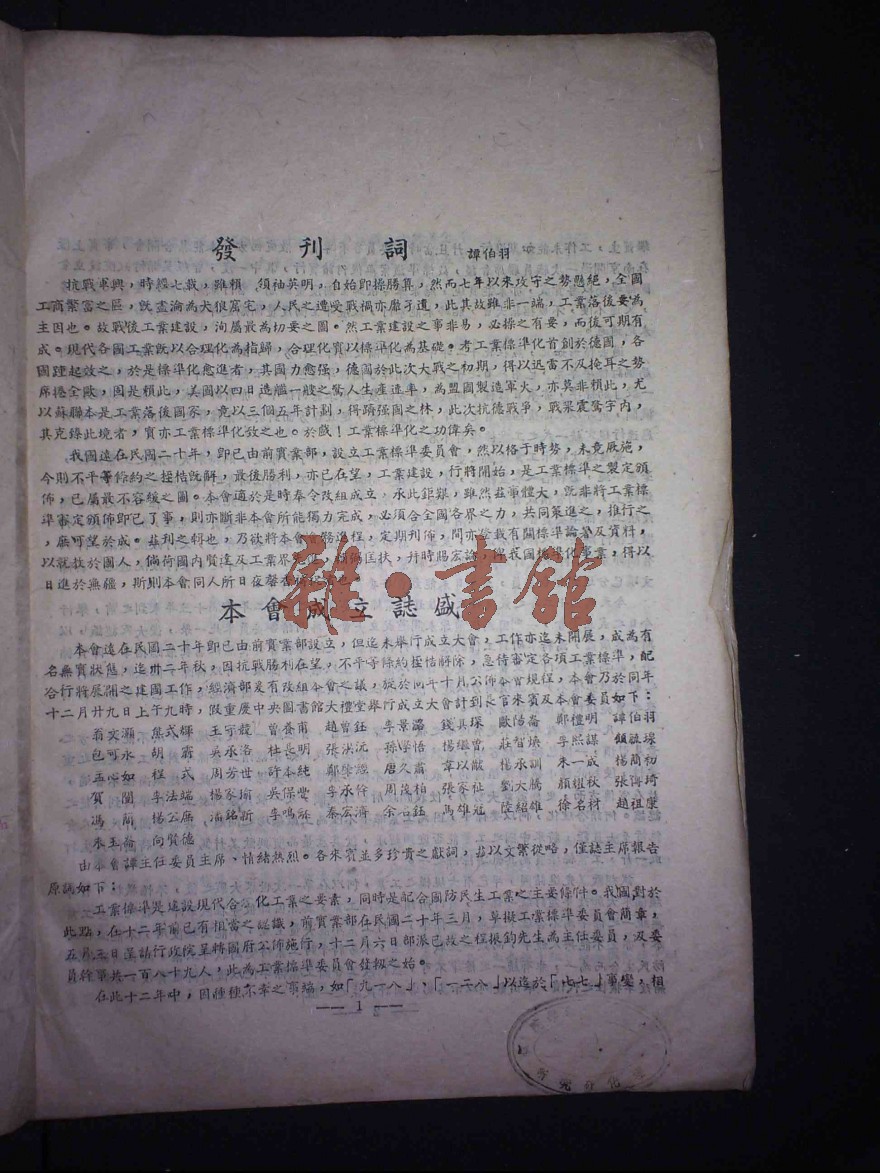 發刊詞 譚伯羽
抗戰軍興，時經七載，雖賴 領袖英明，自始即操勝算，然而七年以來攻守之勢懸絕，全國
工商繁富之區，既盡淪為犬狼窟宅，人民之遭受戰禍亦靡孑遺，此其故雖非一端，工業落後要為
主因也。故戰後工業建設，洵屬最為切要之圖。然工業建設之事非易，必操之有要，而後可期有
成。現代各國工業既以合理化為指歸，合理化實以標準化為基礎。考工業標準化首創於德國，各
國踵起效之，於是標準化愈進者，其國力愈强，德國於此次大戰之初期，得以迅雷不及掩耳之勢
席捲全歐，固是賴此，美國以四日造艦一艘之驚人生產速率，為盟國製造軍火，亦莫非賴此，尤
以蘇聯本是工業落後國家，竟以三個五年計劃，得躋强國之林，此次抗德戰爭，戰果震驚宇內，
其克臻此境者，實亦工業標準化致之也。於戲！工業標準化之功偉矣。
我國遠在民國二十年，即已由前實業部，設立工業標準委員會，然以格于時勢，未竟厥施，
今則不平等條約之桎梏既解，最後勝利，亦已在望，工業建設，行將開始，是工業標準之製定頒
佈，已屬最不容緩之圖。本會適於是時奉令改組成立，承此鉅艱，雖然茲事體大，既非將工業標
準審定頒佈即已了事，則亦斷非本會所能獨力完成，必須合全國各界之力，共同策進之，推行之
，庶可望於成。茲刊之輯也，乃欲將本會會務進程，定期刊佈，間亦登載有關標準論著及資料，
以就教於國人，倘荷國內賢達及工業界 匡扶，幷時賜宏論，俾我國標準化事業，得以
日進於無疆，斯則本會同人所日夜馨香
本會成立誌盛
本會遠在民國二十年即已由前實業部設立，但迄未舉行成立大會，工作亦迄未開展，成為有
名無實狀態，迄卅二年秋，因抗戰勝利在望，不平等條約桎梏解除，急待審定各項工業標準，配
合行將展開之建國工作，經濟部爰有改組本會之議，旋於同年十月公佈本會規程，本會乃於同年
十二月廿九日上午九時，假重慶中央圖書館大禮堂舉行成立大會計到長官來賓及本會委員如下：
翁文灝 焦式輝 王可毅 曾養甫 趙曾珏 李景潞 錢其琛 歐陽崙 鄭禮明 譚伯羽
包可永 胡蔚 吳承洛 杜長明 張洪沅 孫學悟 楊繼曾 莊智煥 李熙謀 顧毓瑔
孟心如 程式 周芳世 許本純 鄭學澄 唐久肅 韋以黻 楊承訓 朱一成 楊簡初
賀闓 李法端 楊家瑜 吳保豐 李承幹 周茂柏 張家祉 劉大鵬 顏祖秋 張傳琦
馮簡 楊公庶 潘銘新 李鳴龢 秦宏濟 余名鈺 馬雄冠 陸紹雄 徐名材 趙祖康
朱玉崙 向賢德
由本會譚主任委員主席、情緒熱烈。各來賓並多珍貴之獻詞，茲以文繁從略，僅誌主席報告
原詞如下：
工業標準是建設現代合理化工業之要素，同時是配合國防民生工業之主要條件。我國對於
此點，在十二年前已有相當之認識，前實業部在民國二十年三月，草擬工業標準委員會簡章，
五月三日呈請行政院呈轉國府公佈施行，十二月六日部派已故之程振鈞先生為主任委員，及委
員徐等共一百八十九人，此為工業標準委員會發軔之始。
在此十二年中，因種種不幸之事端，如「九一八」、「一二八」以迄於「七七」事變，相
— 1 —
雜·書館